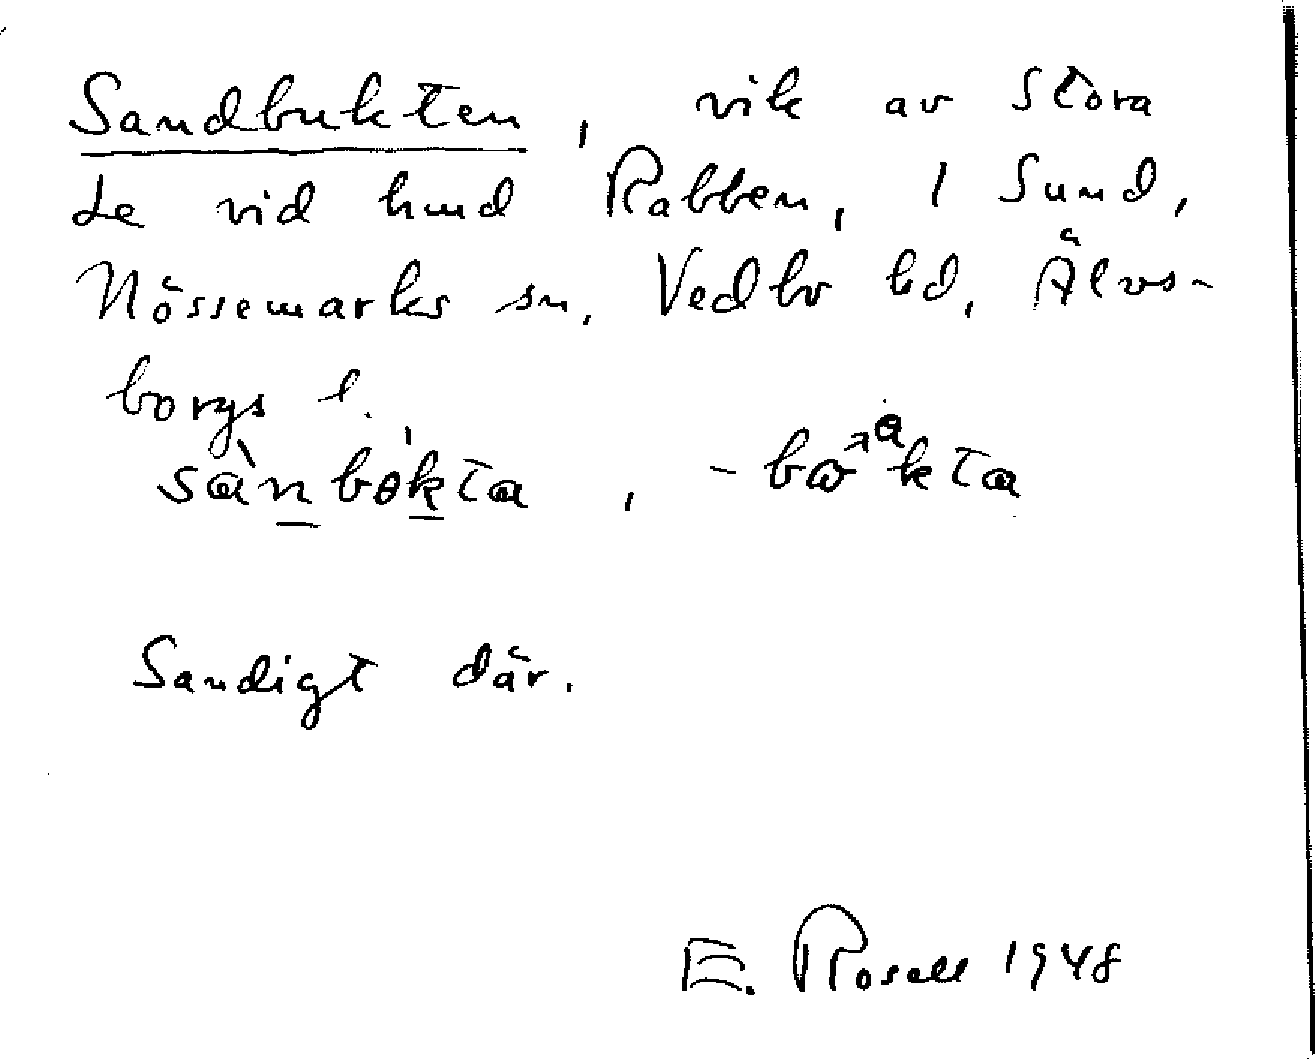 Sandbukten, vik av Stora
Le vid hmd Rabben, 1 Sund,
Nössemarks sn, Vedbo hd, Älvs-
borgs l.
sànbókta, -bωᵃkta
Sandigt där.
E. Rosell 1948